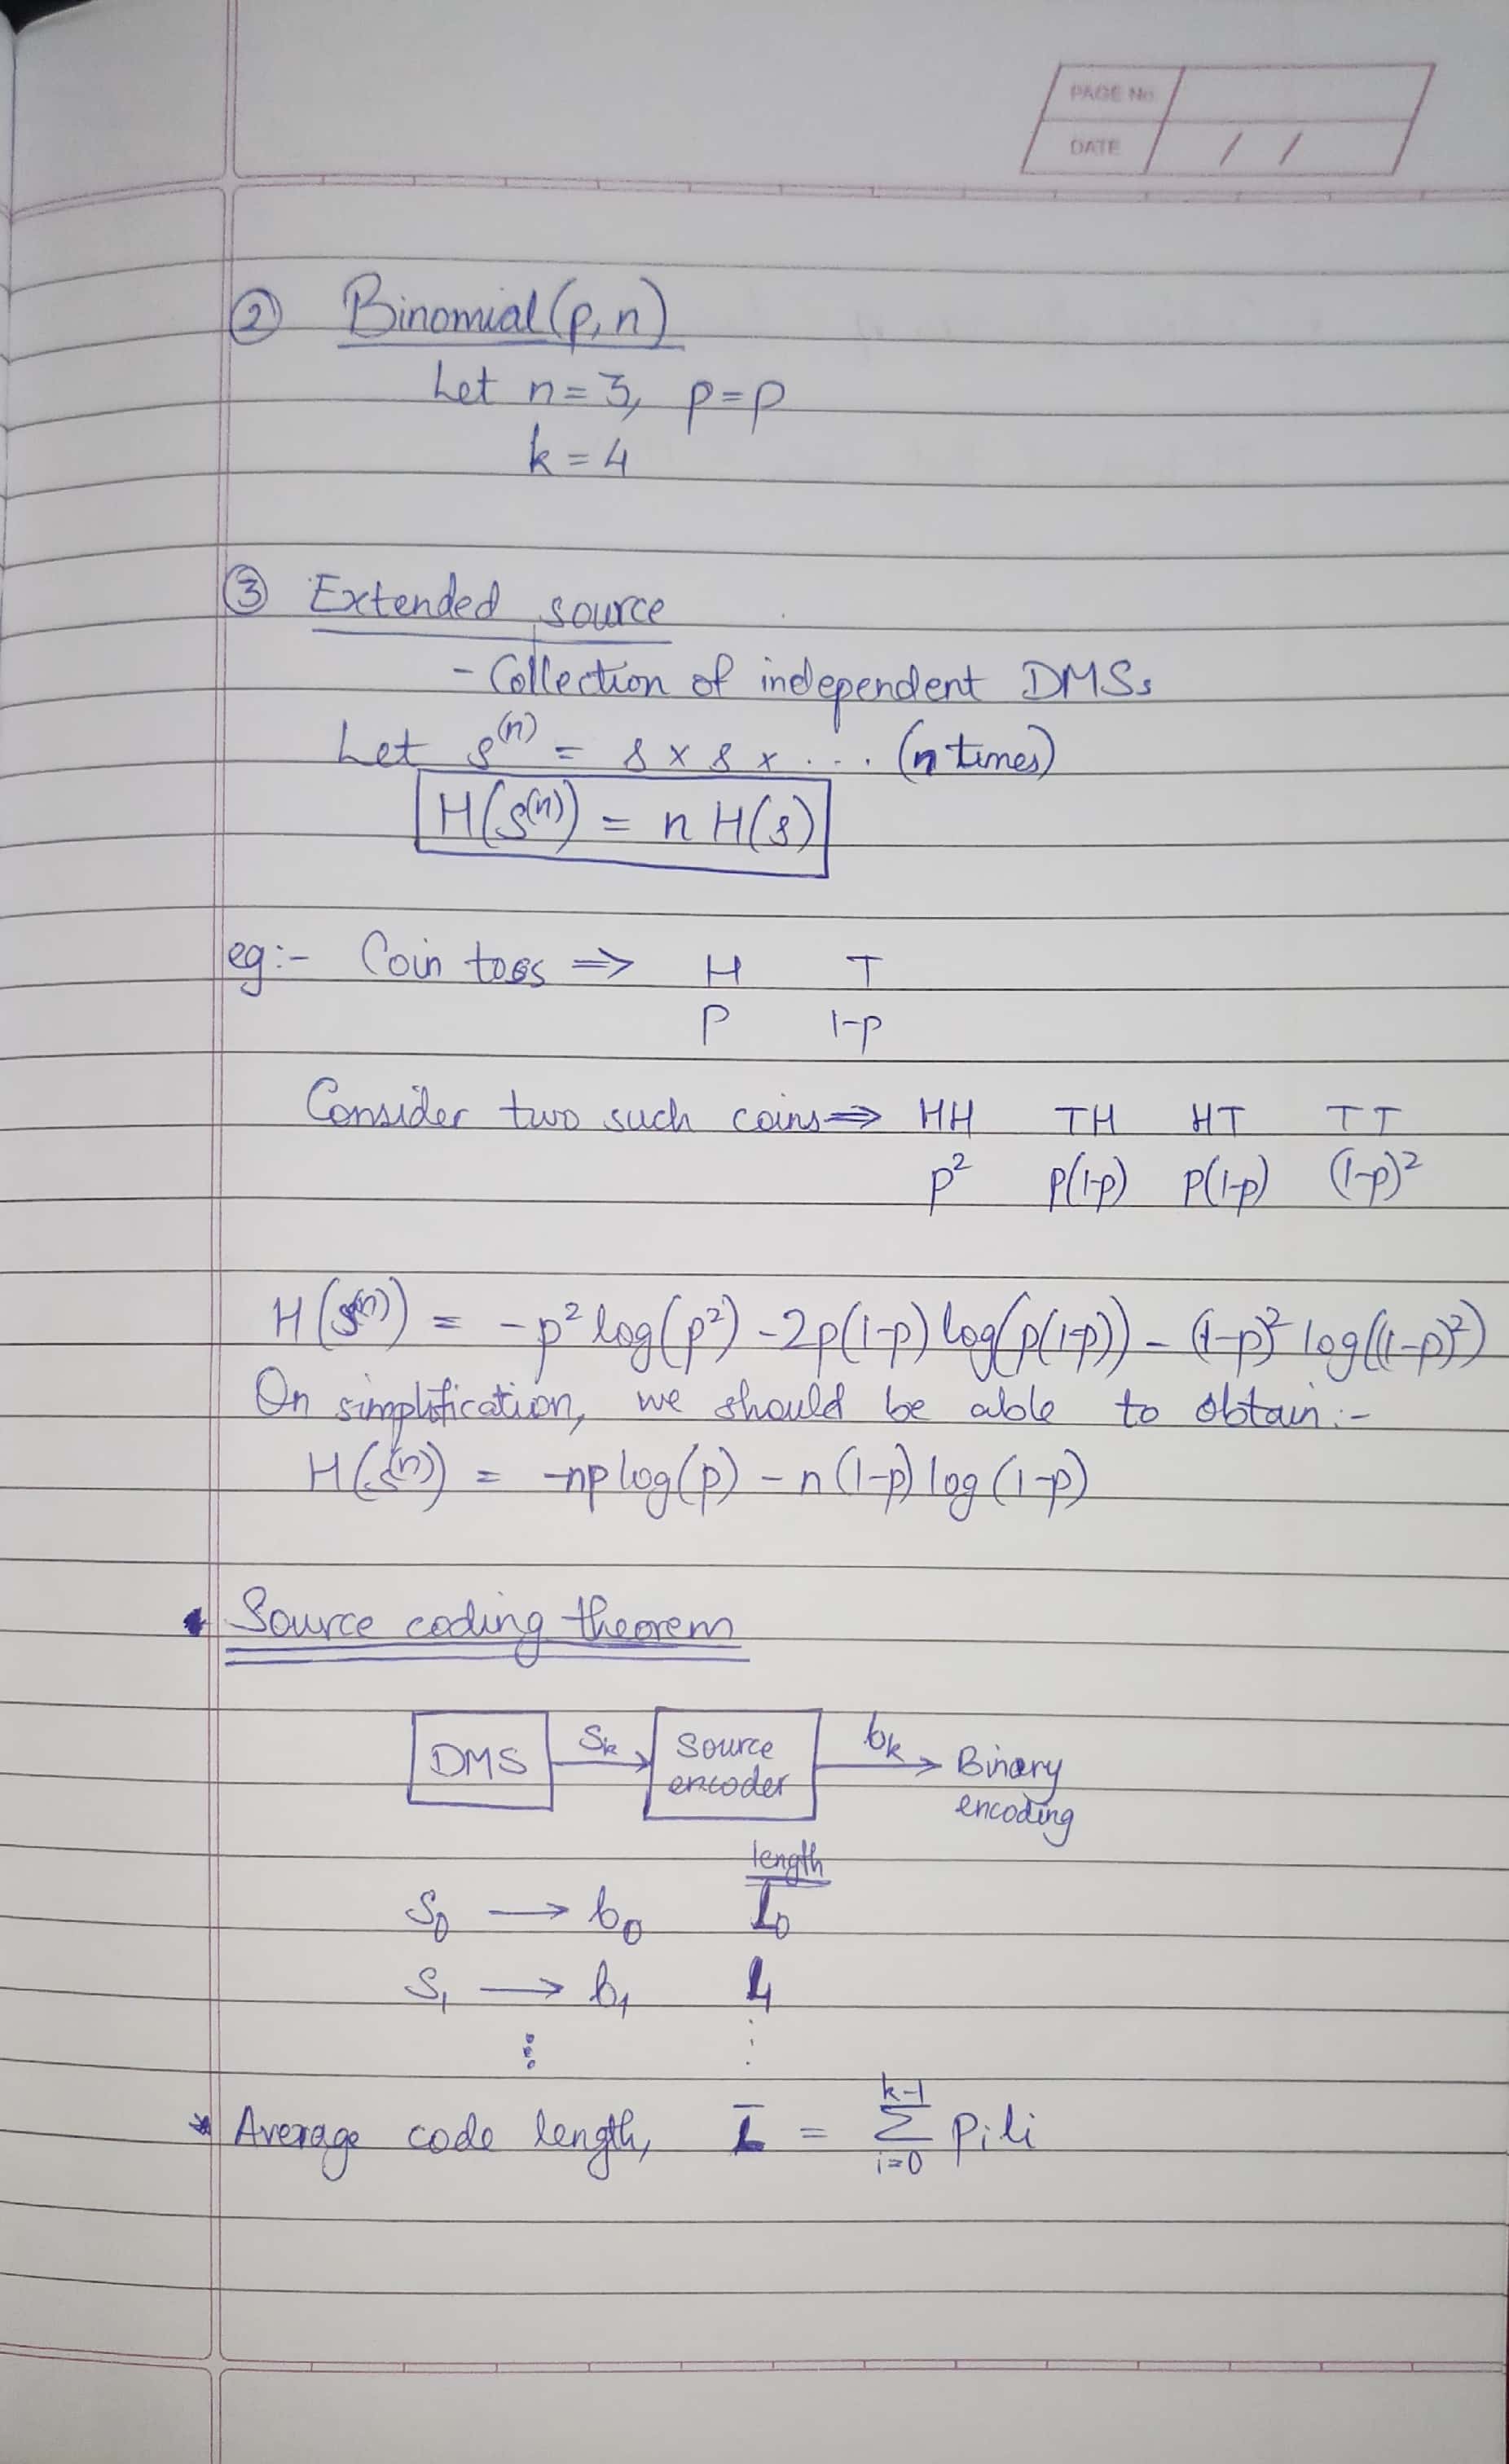 PAGE No
DATE / /
② Binomial (p, n)
Let n = 3, p = p
k = 4
③ Extended source
- Collection of independent DMSs
Let s⁽ⁿ⁾ = s × s × ... (n times)
H(s⁽ⁿ⁾) = n H(s)
eg:- Coin toss ⇒ H T
p 1-p
Consider two such coins ⇒ HH TH HT TT
p² p(1-p) p(1-p) (1-p)²
H(s⁽ⁿ⁾) = -p² log(p²) - 2p(1-p) log(p(1-p)) - (1-p)² log((1-p)²)
On simplification, we should be able to obtain:-
H(s⁽ⁿ⁾) = -np log(p) - n(1-p) log(1-p)
Source coding theorem
DMS Sk Source encoder bk Binary encoding
length
S₀ → b₀ L₀
S₁ → b₁ L₁
⋮ ⋮
* Average code length, L̄ = Σ_{i=0}^{k-1} pᵢ lᵢ